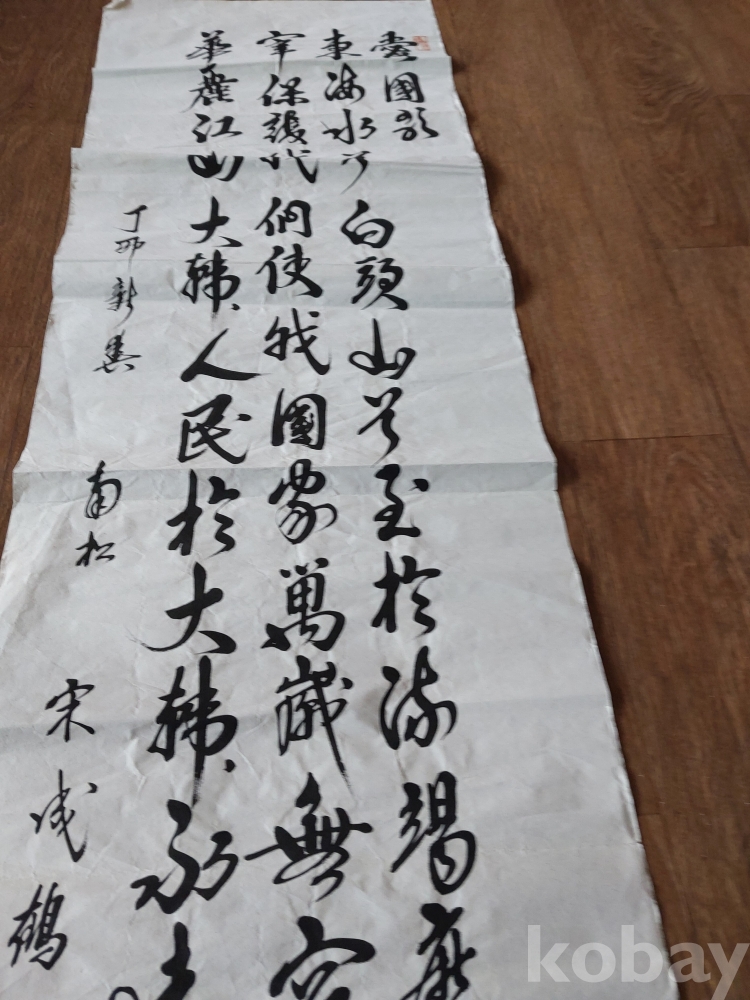 愛國歌
東海水白頭山至於流竭
保護們使我國家萬歲無
華麗江山大韓人民於大韓永
丁卯新
南松
宋成鶴
kobay